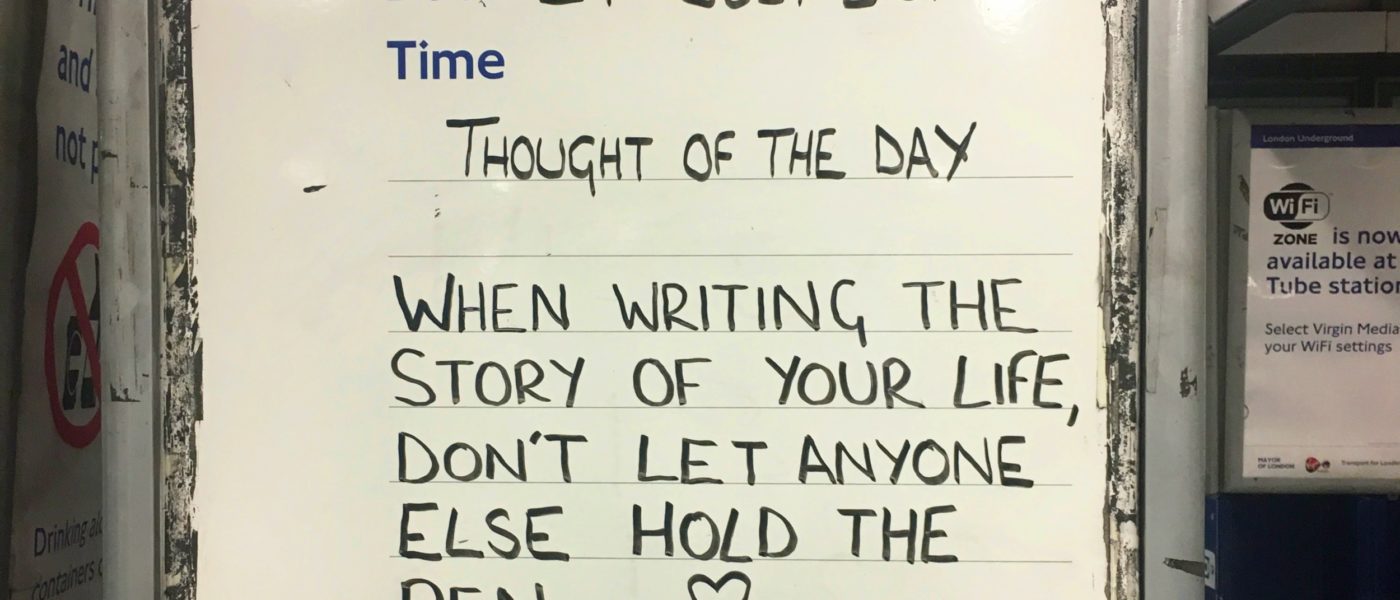 and
not
Time
THOUGHT OF THE DAY
WHEN WRITING THE
STORY OF YOUR LIFE,
DON'T LET ANYONE
ELSE HOLD THE
PEN
Drinking
containers
London Underground
WiFi
ZONE is now
available at
Tube station
Select Virgin Media
your WiFi settings
MAYOR
OF LONDON
Transport for London